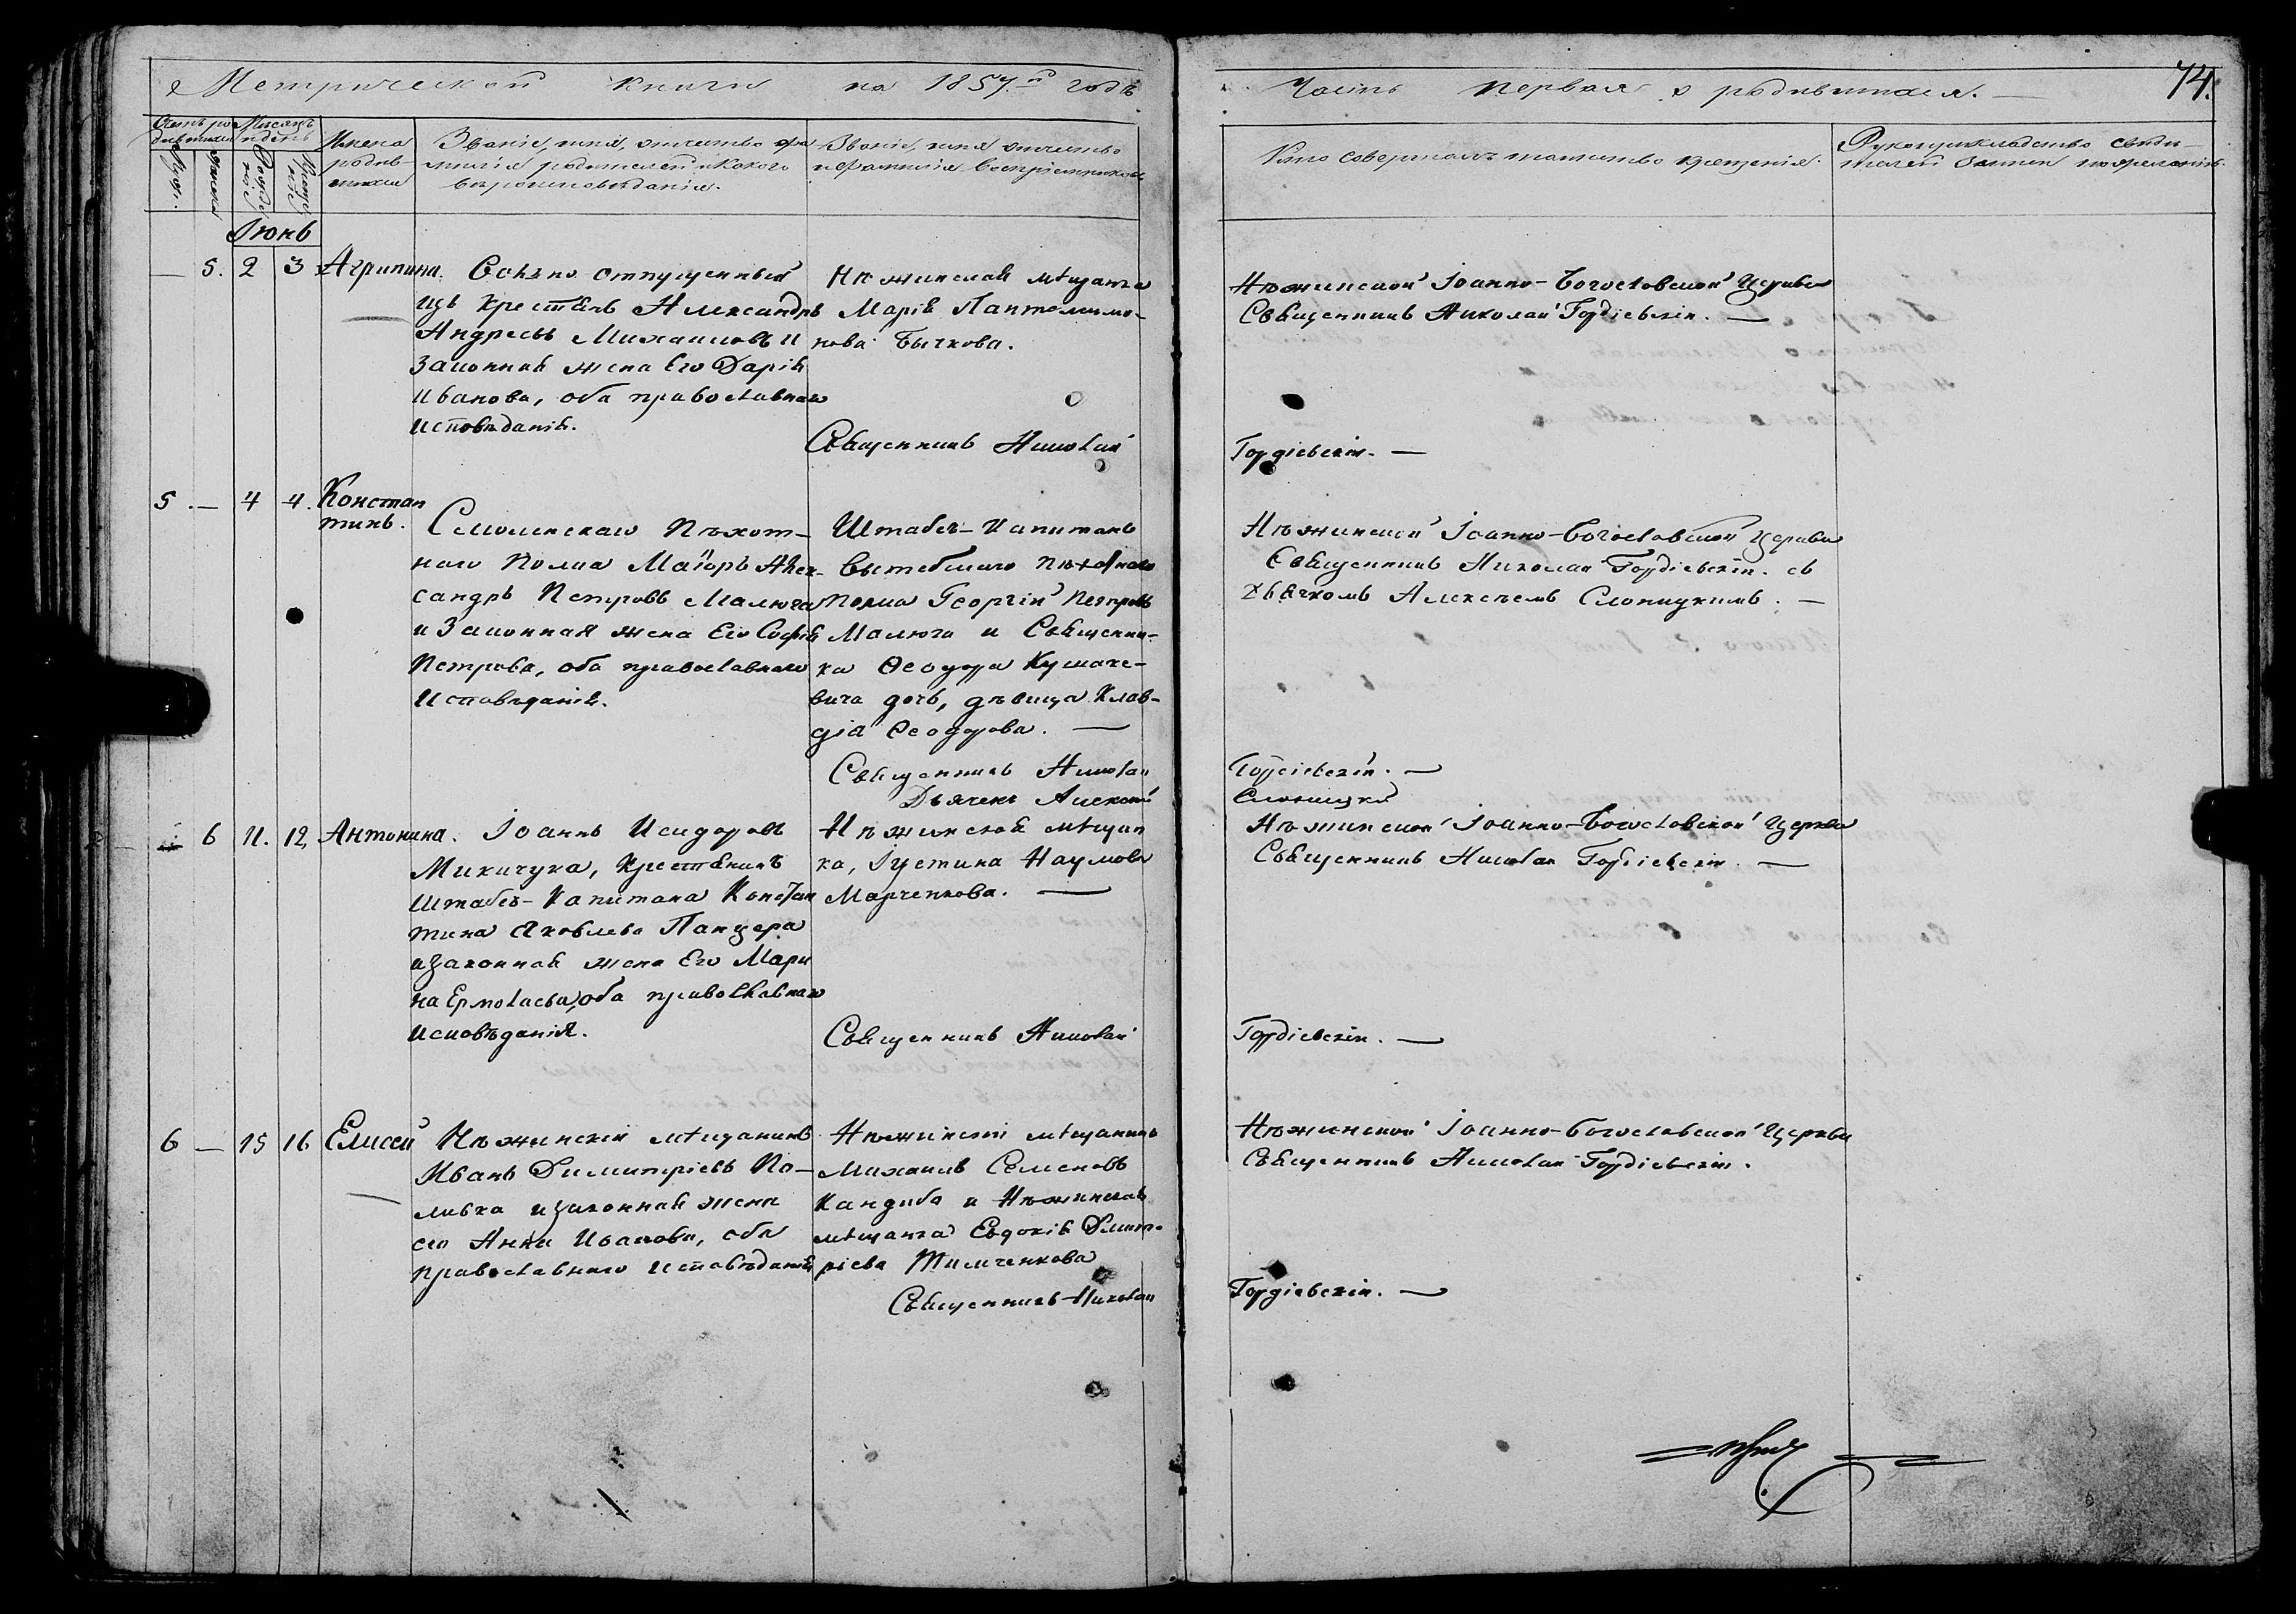 Метрической книги на 1857.й годъ
Часть первая о родившихся. 74.
Счетъ ро дившихся
Мѣсяцъ и день
Имена родив шихся
Званіе, имя, отчество и фа-
милія родителей и какого
вѣроисповѣданія.
Званіе, имя отчество
и фамилія воспріемниковъ
Кто совершалъ таинство крещенія.
Рукоприкладство свиди-
телей записи по желанію.
Іюнь
— 5. 2 3 Агрипина.
Вѣчно отпущенный
изъ крестьянъ Александръ
Андреевъ Михаиловъ и
законная жена его Дарія
Иванова, оба православнаго
исповѣданія.
Нѣжинская мѣщанка
Марія Пантолимо-
нова Бычкова.
Священникъ Николай
Нѣжинской Іоанно-Богословской Церкви
Священникъ Николай Гордіевскій. —
Гордіевскій. —
5. — 4 4. Констан
тинъ.
Смоленскаго Пѣхот-
наго Полка Маіоръ Алек-
сандръ Петровъ Малюга
и Законная жена Его Софія
Петрова, оба православнаго
Исповѣданія.
Штабсъ-Капитанъ
Вытебскаго Пѣхотнаго
полка Георгій Петровъ
Малюга и Священни-
ка Ѳеодора Кушаке-
вича дочь, дѣвица Клав-
дія Ѳеодорова. —
Священникъ Николай
Дьячекъ Алексѣй
Нѣжинской Іоанно-Богословской Церкви
Священникъ Николай Гордіевскій. съ
дьячкомъ Алексѣемъ Слоницкимъ. —
Гордіевскій. —
Слоницкій
6 11. 12, Антонина.
Іоаннъ Исидоровъ
Микичука, Крестьянинъ
Штабсъ-Капитана Констан
тина Яковлева Панцера
и законная жена Его Мари
на Ермолаева, оба православнаго
исповѣданія.
Нѣжинская мѣщан
ка, Іустина Наумова
Марченкова. —
Священникъ Николай
Нѣжинской Іоанно-Богословской Церкви
Священникъ Николай Гордіевскій. —
Гордіевскій. —
6 — 15 16 Елисей
Нѣжинскій мѣщанинъ
Иванъ Димитріевъ По-
ливка и законная жена
его Анна Иванова, оба
православнаго исповѣданія
Нѣжинскій мѣщанинъ
Михаилъ Семеновъ
Кандиба и Нѣжинская
мѣщанка Евдокія Дмит-
ріева Тимченкова
Священникъ Николай
Нѣжинской Іоанно-Богословской Церкви
Священникъ Николай Гордіевскій.
Гордіевскій. —